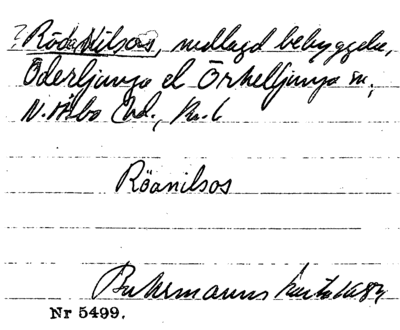 ? Röda Nilsos, nedlagd bebyggelse,
Oderljunga el Örkelljunga sn,
N. Åsbo hd., Kr. l
Röanilsos
Buhrmanns karta 1684
Nr 5499.